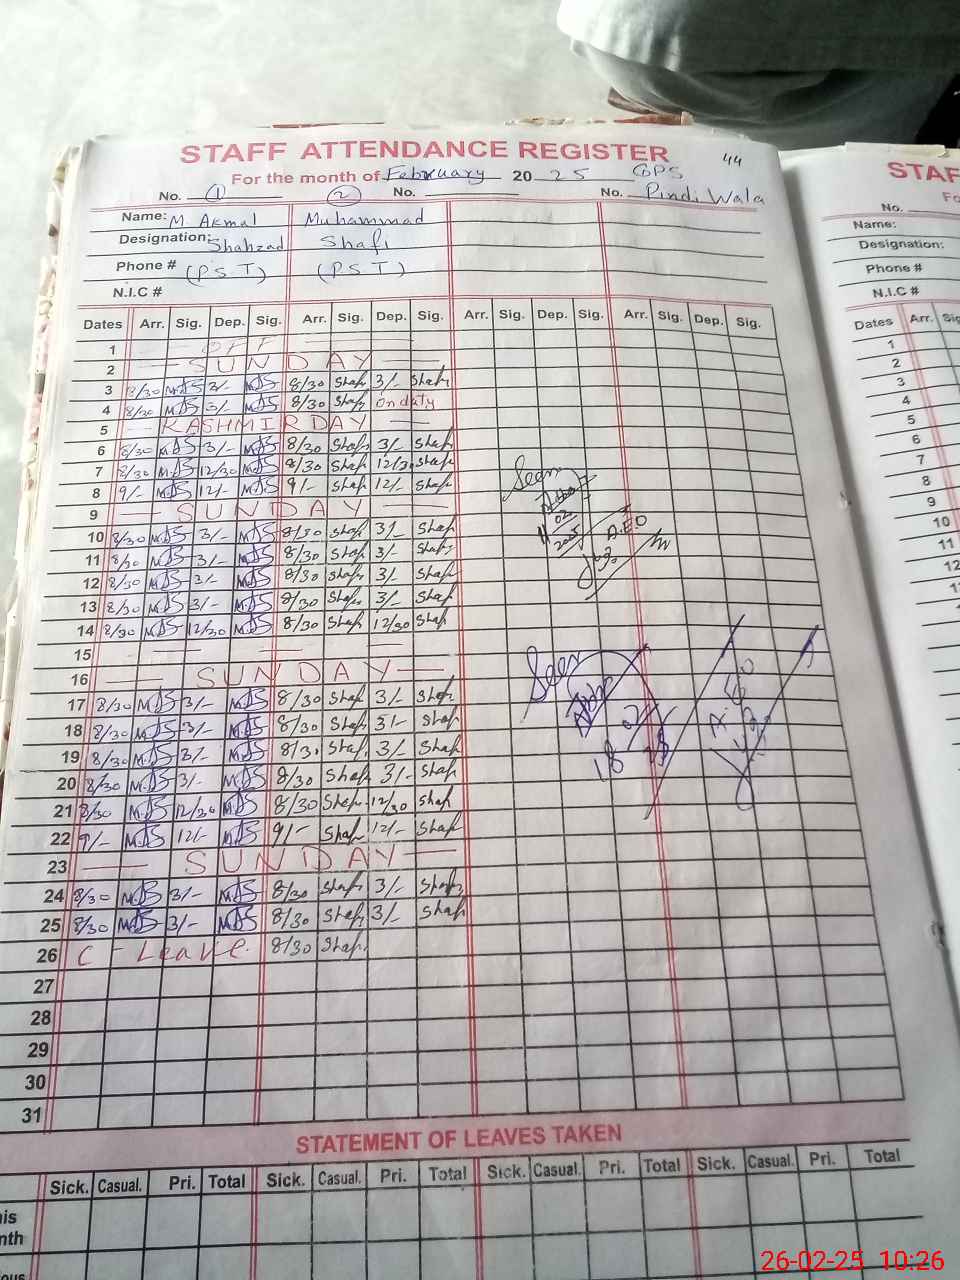 STAFF ATTENDANCE REGISTER 44
For the month of February 20 25 GPS
No. 1 2 No. No. Pindi Wala
Name: M Akmal Muhammad
Designation: Shahzad Shafi
Phone # (P.S.T) (P.S.T)
N.I.C #
Dates Arr. Sig. Dep. Sig. Arr. Sig. Dep. Sig. Arr. Sig. Dep. Sig. Arr. Sig. Dep. Sig.
1 OFF
2 SUNDAY
3 8/30 MAS 3/- MAS 8/30 Shafi 3/- Shafi
4 8/30 MAS 3/- MAS 8/30 Shafi on duty
5 KASHMIR DAY
6 8/30 MAS 3/- MAS 8/30 Shafi 3/- Shafi
7 8/30 MAS 12/30 MAS 8/30 Shafi 12/30 Shafi
8 9/- MAS 12/- MAS 9/- Shafi 12/- Shafi
9 SUNDAY
10 8/30 MAS 3/- MAS 8/30 Shafi 3/- Shafi
11 8/30 MAS 3/- MAS 8/30 Shafi 3/- Shafi
12 8/30 MAS 3/- MAS 8/30 Shafi 3/- Shafi
13 8/30 MAS 3/- MAS 8/30 Shafi 3/- Shafi
14 8/30 MAS 12/30 MAS 8/30 Shafi 12/30 Shafi
15
16 SUNDAY
17 8/30 MAS 3/- MAS 8/30 Shafi 3/- Shafi
18 8/30 MAS 3/- MAS 8/30 Shafi 3/- Shafi
19 8/30 MAS 3/- MAS 8/30 Shafi 3/- Shafi
20 8/30 MAS 3/- MAS 8/30 Shafi 3/- Shafi
21 8/30 MAS 12/30 MAS 8/30 Shafi 12/30 Shafi
22 9/- MAS 12/- MAS 9/- Shafi 12/- Shafi
23 SUNDAY
24 8/30 MAS 3/- MAS 8/30 Shafi 3/- Shafi
25 8/30 MAS 3/- MAS 8/30 Shafi 3/- Shafi
26 C - Leave. 8/30 Shafi
27
28
29
30
31
Seen
11 02 2025
A.E.O
Seen
18 02 25
A.E.O
STATEMENT OF LEAVES TAKEN
Sick. Casual. Pri. Total Sick. Casual. Pri. Total Sick. Casual. Pri. Total Sick. Casual. Pri. Total
STAF
No.
Name:
Designation:
Phone #
N.I.C #
Dates Arr.
1
2
3
4
5
6
7
8
9
10
11
26-02-25 10:26